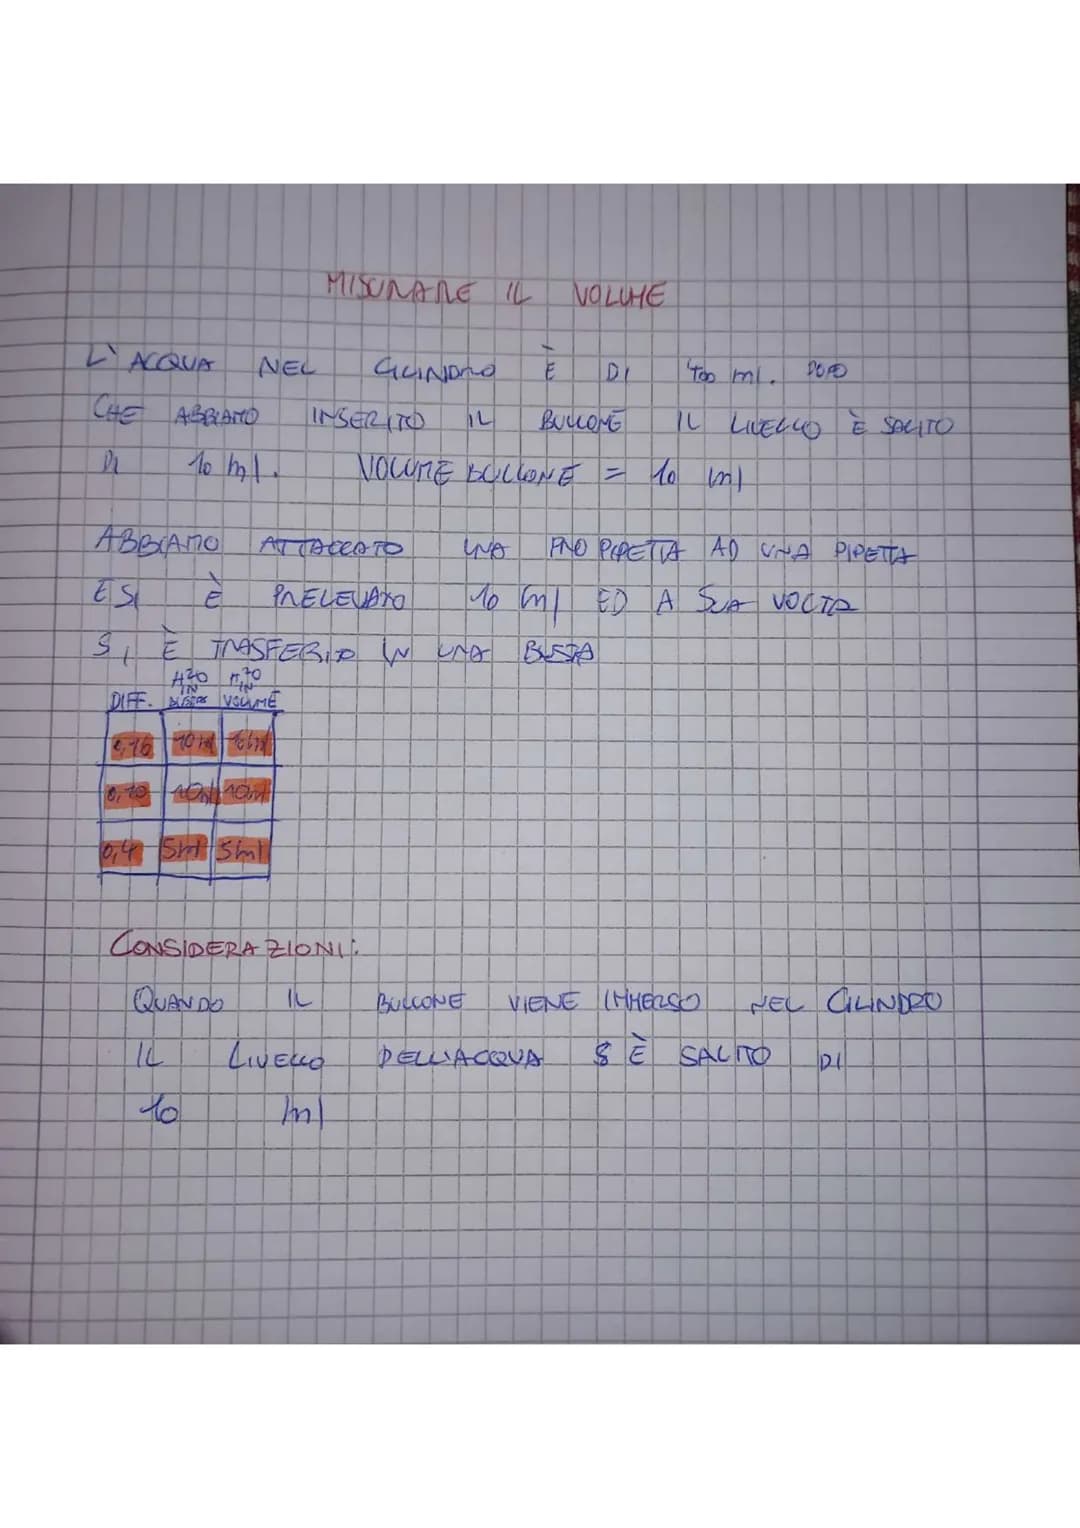 MISURARE IL VOLUME
L'ACQUA NEL CILINDRO È DI 400 ml. DOPO
CHE ABBIAMO INSERITO IL BULLONE IL LIVELLO È SALITO
DI 10 ml. VOLUME BULLONE = 10 ml
ABBIAMO ATTACCATO UNA PROPIPETTA AD UNA PIPETTA
E SI È PRELEVATO 10 ml ED A SUA VOLTA
SI È TRASFERITO IN UNA BUSTA
DIFF. H20 IN H20 IN VOLUME
10 ml
0,10 10ml 10ml
0,4 5ml 5ml
CONSIDERAZIONI:
QUANDO IL BULLONE VIENE IMMERSO NEL CILINDRO
IL LIVELLO DELL'ACQUA È SALITO DI
10 ml